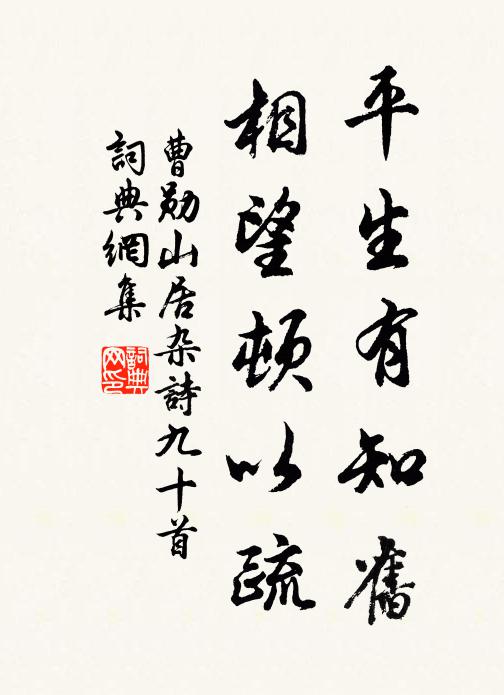 平生有知舊
相望頓以疏
曹勛山居杂詩九十首
詞典網集
詞典網印